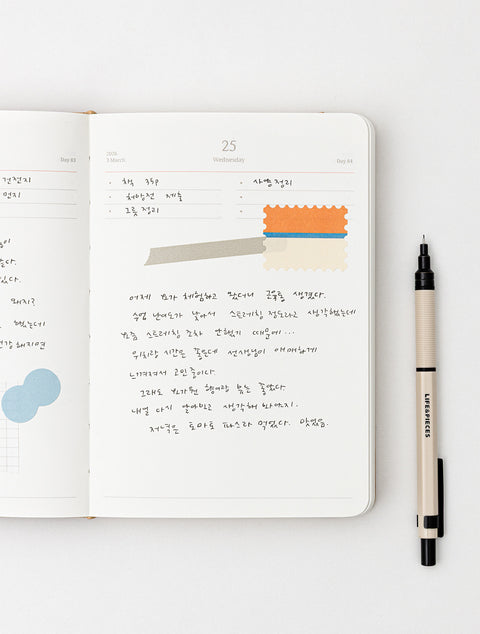 Day 83
건전지
먼지
있다.
돼지?
했는데
강해지면
2026
3 March
25
Wednesday
Day 84
· 책 35p
· 처방전 제출
· 그릇 정리
어제 요가 체험하고 왔더니 생겼다.
수업 난이도가 낮아서 스트레칭 정도라고 생각했는데
요즘 스트레칭 조차 안했기 때문에...
위치랑 시간은 좋은데 선생님이 애매하게
느껴져서 고민 중이다.
그래도 요가원 뷰는 좋았다
내일 다시 알아보고 생각해 봐야지.
저녁은 토마토 파스타 먹었다. 맛있음.
LIFE&PIECES